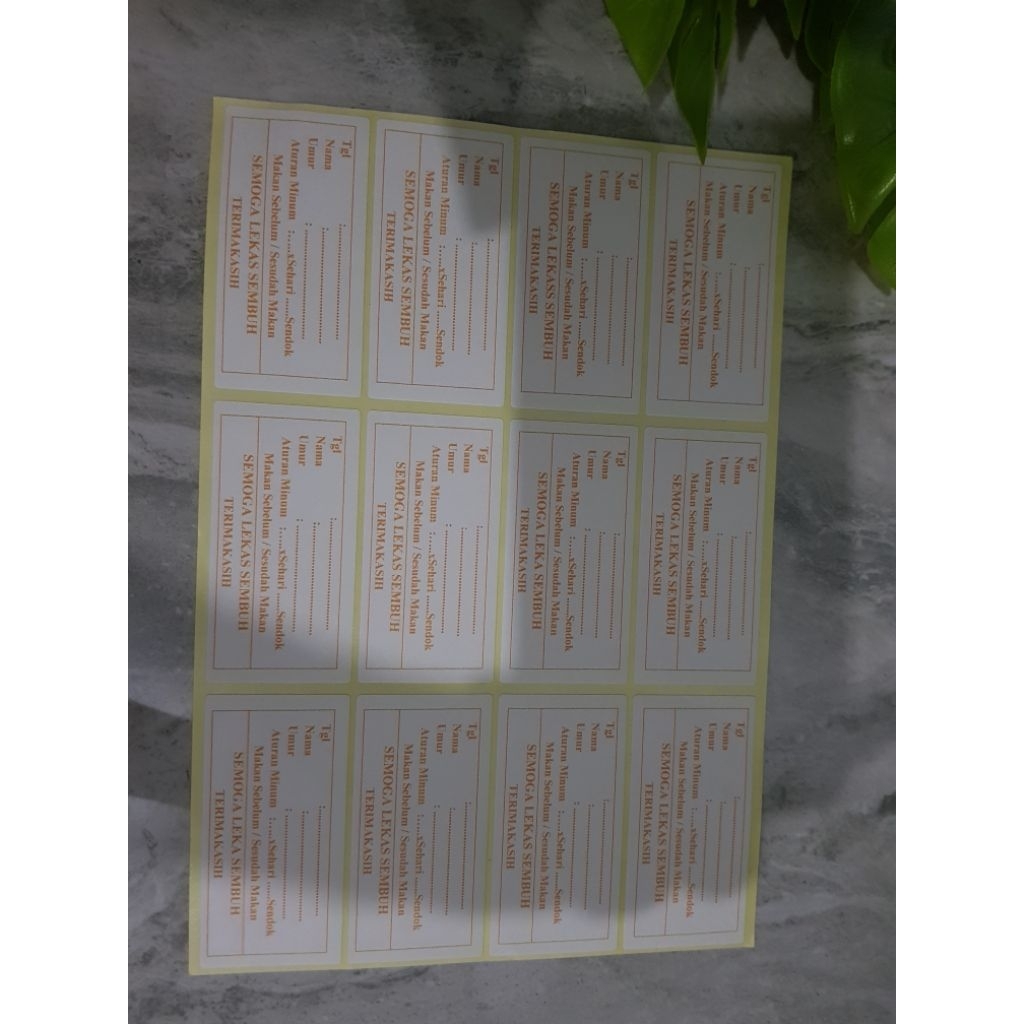 Tgl :..............................
Nama :..............................
Umur :..............................
Aturan Minum :.....xSehari .....Sendok
Makan Sebelum / Sesudah Makan
SEMOGA LEKAS SEMBUH
TERIMAKASIH
Tgl :..............................
Nama :..............................
Umur :..............................
Aturan Minum :.....xSehari .....Sendok
Makan Sebelum / Sesudah Makan
SEMOGA LEKAS SEMBUH
TERIMAKASIH
Tgl :..............................
Nama :..............................
Umur :..............................
Aturan Minum :.....xSehari .....Sendok
Makan Sebelum / Sesudah Makan
SEMOGA LEKAS SEMBUH
TERIMAKASIH
Tgl :..............................
Nama :..............................
Umur :..............................
Aturan Minum :.....xSehari .....Sendok
Makan Sebelum / Sesudah Makan
SEMOGA LEKASS SEMBUH
TERIMAKASIH
Tgl :..............................
Nama :..............................
Umur :..............................
Aturan Minum :.....xSehari .....Sendok
Makan Sebelum / Sesudah Makan
SEMOGA LEKA SEMBUH
TERIMAKASIH
Tgl :..............................
Nama :..............................
Umur :..............................
Aturan Minum :.....xSehari .....Sendok
Makan Sebelum / Sesudah Makan
SEMOGA LEKAS SEMBUH
TERIMAKASIH
Tgl :..............................
Nama :..............................
Umur :..............................
Aturan Minum :.....xSehari .....Sendok
Makan Sebelum / Sesudah Makan
SEMOGA LEKAS SEMBUH
TERIMAKASIH
Tgl :..............................
Nama :..............................
Umur :..............................
Aturan Minum :.....xSehari .....Sendok
Makan Sebelum / Sesudah Makan
SEMOGA LEKAS SEMBUH
TERIMAKASIH
Tgl :..............................
Nama :..............................
Umur :..............................
Aturan Minum :.....xSehari .....Sendok
Makan Sebelum / Sesudah Makan
SEMOGA LEKAS SEMBUH
TERIMAKASIH
Tgl :..............................
Nama :..............................
Umur :..............................
Aturan Minum :.....xSehari .....Sendok
Makan Sebelum / Sesudah Makan
SEMOGA LEKAS SEMBUH
TERIMAKASIH
Tgl :..............................
Nama :..............................
Umur :..............................
Aturan Minum :.....xSehari .....Sendok
Makan Sebelum / Sesudah Makan
SEMOGA LEKAS SEMBUH
TERIMAKASIH
Tgl :..............................
Nama :..............................
Umur :..............................
Aturan Minum :.....xSehari .....Sendok
Makan Sebelum / Sesudah Makan
SEMOGA LEKA SEMBUH
TERIMAKASIH